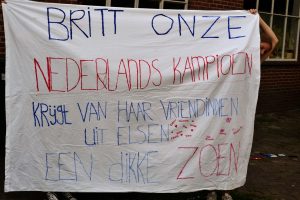 BRITT ONZE
NEDERLANDS KAMPIOEN
KRIJGT VAN HAAR VRIENDINNEN
UIT ELSEN
EEN DIKKE ZOEN